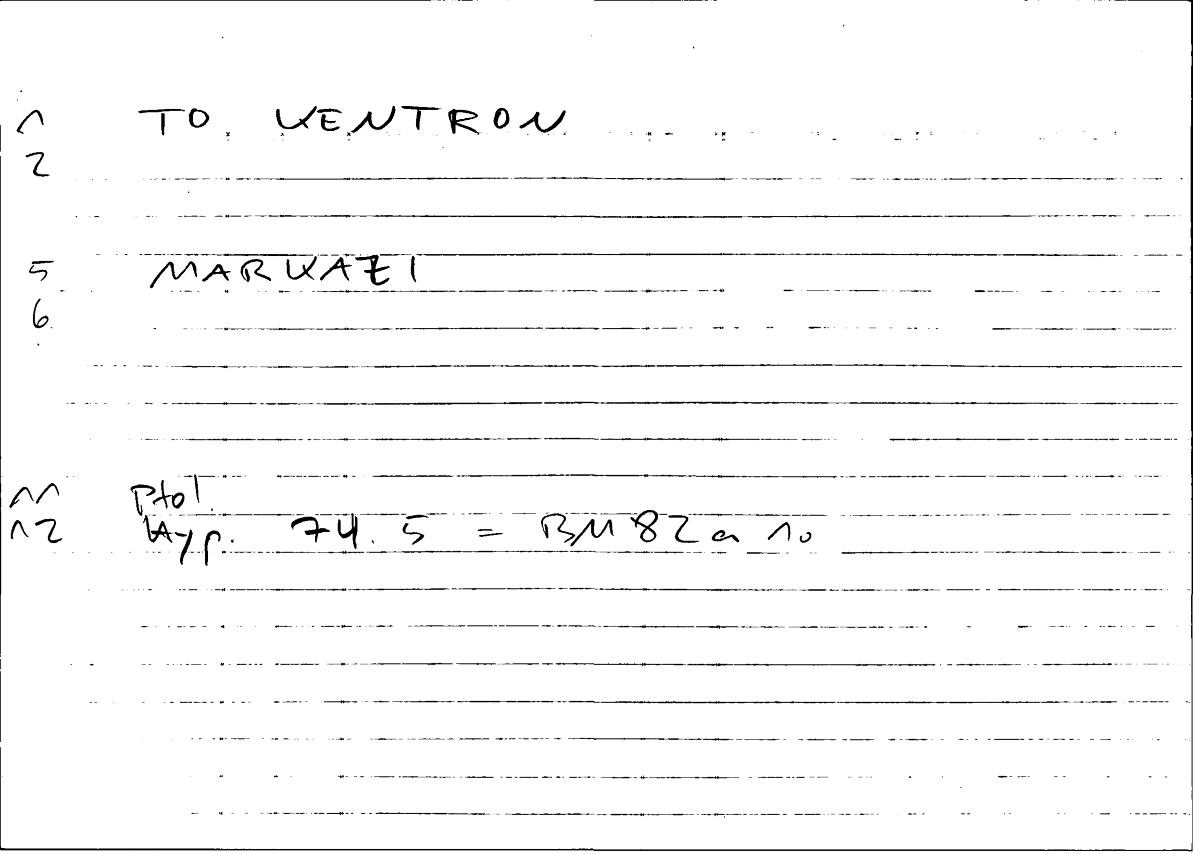 1 TO KENTRON
2
5 MARKAZI
6
11 Ptol.
12 Hyp. 74.5 = BM 82a 10